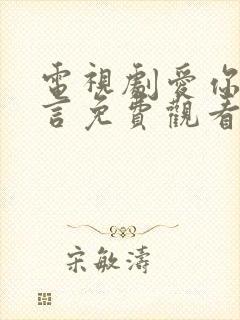 電視劇愛你
言免費觀看
宋敏濤